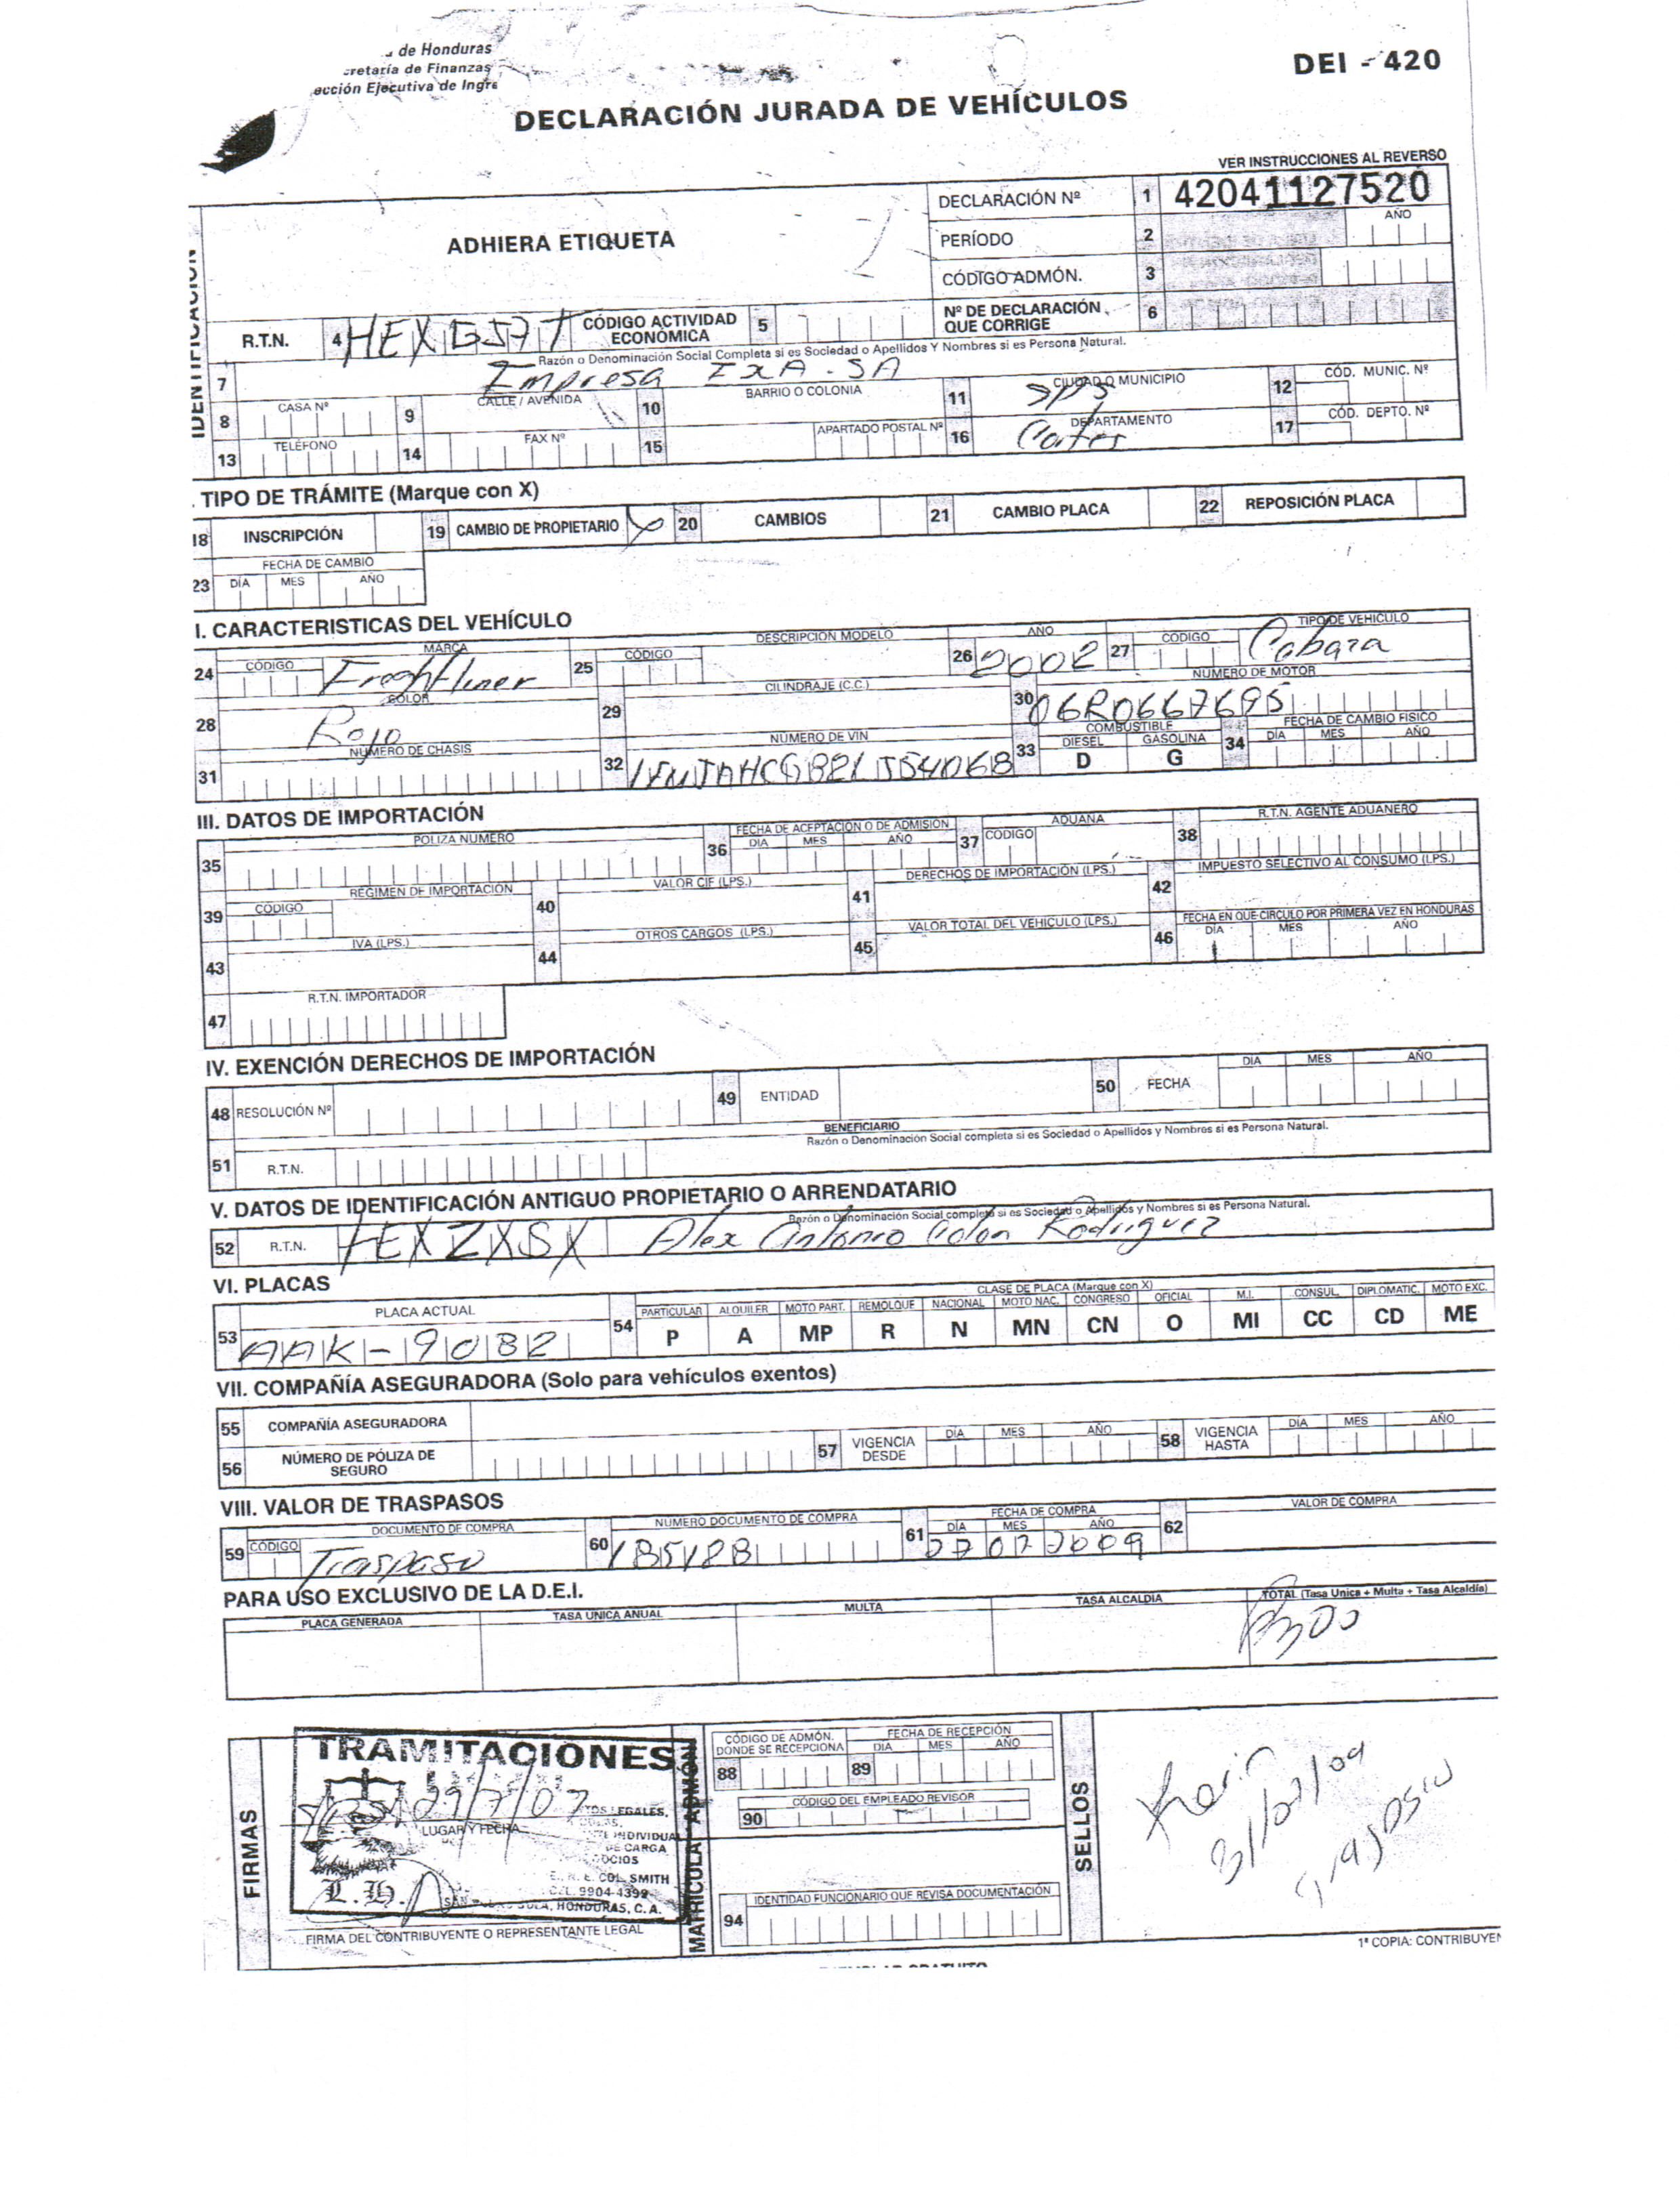 de Honduras
cretaría de Finanzas
ección Ejecutiva de Ingre
DEI - 420
DECLARACIÓN JURADA DE VEHÍCULOS
VER INSTRUCCIONES AL REVERSO
IDENTIFICACIÓN
ADHIERA ETIQUETA
DECLARACIÓN Nº 1 42041127520
PERÍODO 2 AÑO
CÓDIGO ADMÓN. 3
R.T.N. 4 CÓDIGO ACTIVIDAD ECONÓMICA 5 Nº DE DECLARACIÓN QUE CORRIGE 6
Razón o Denominación Social Completa si es Sociedad o Apellidos Y Nombres si es Persona Natural.
7 Empresa SA
8 CASA Nº 9 CALLE / AVENIDA 10 BARRIO O COLONIA 11 CIUDAD O MUNICIPIO SPS 12 CÓD. MUNIC. Nº
13 TELÉFONO 14 FAX Nº 15 APARTADO POSTAL Nº 16 DEPARTAMENTO Cortes 17 CÓD. DEPTO. Nº
. TIPO DE TRÁMITE (Marque con X)
18 INSCRIPCIÓN 19 CAMBIO DE PROPIETARIO X 20 CAMBIOS 21 CAMBIO PLACA 22 REPOSICIÓN PLACA
23 FECHA DE CAMBIO DÍA MES AÑO
I. CARACTERISTICAS DEL VEHÍCULO
24 CÓDIGO MARCA Freghtliner 25 CÓDIGO DESCRIPCIÓN MODELO 26 AÑO 2002 27 CÓDIGO TIPO DE VEHÍCULO
28 COLOR Rojo 29 CILINDRAJE (C.C.) 30 NÚMERO DE MOTOR 06R0667695
31 NÚMERO DE CHASIS 32 NÚMERO DE VIN 33 COMBUSTIBLE DIESEL D GASOLINA G 34 FECHA DE CAMBIO FÍSICO DÍA MES AÑO
III. DATOS DE IMPORTACIÓN
35 POLIZA NÚMERO 36 FECHA DE ACEPTACIÓN O DE ADMISIÓN DÍA MES AÑO 37 CÓDIGO ADUANA 38 R.T.N. AGENTE ADUANERO
39 CÓDIGO RÉGIMEN DE IMPORTACIÓN 40 VALOR CIF (LPS.) 41 DERECHOS DE IMPORTACIÓN (LPS.) 42 IMPUESTO SELECTIVO AL CONSUMO (LPS.)
43 IVA (LPS.) 44 OTROS CARGOS (LPS.) 45 VALOR TOTAL DEL VEHÍCULO (LPS.) 46 FECHA EN QUE CIRCULO POR PRIMERA VEZ EN HONDURAS DÍA MES AÑO
47 R.T.N. IMPORTADOR
IV. EXENCIÓN DERECHOS DE IMPORTACIÓN
48 RESOLUCIÓN Nº 49 ENTIDAD 50 FECHA DIA MES AÑO
BENEFICIARIO
51 R.T.N. Razón o Denominación Social completa si es Sociedad o Apellidos y Nombres si es Persona Natural.
V. DATOS DE IDENTIFICACIÓN ANTIGUO PROPIETARIO O ARRENDATARIO
Razón o Denominación Social completa si es Sociedad o Apellidos y Nombres si es Persona Natural.
52 R.T.N. Alex Antonio Colon Rodriguez
VI. PLACAS
CLASE DE PLACA (Marque con X)
53 PLACA ACTUAL AAK-9082 54 PARTICULAR ALQUILER MOTO PART. REMOLQUE NACIONAL MOTO NAC. CONGRESO OFICIAL M.I. CONSUL. DIPLOMATIC. MOTO EXC.
P A MP R N MN CN O MI CC CD ME
VII. COMPAÑÍA ASEGURADORA (Solo para vehículos exentos)
55 COMPAÑÍA ASEGURADORA
56 NÚMERO DE PÓLIZA DE SEGURO 57 VIGENCIA DESDE DÍA MES AÑO 58 VIGENCIA HASTA DÍA MES AÑO
VIII. VALOR DE TRASPASOS
59 CÓDIGO DOCUMENTO DE COMPRA Traspaso 60 NÚMERO DOCUMENTO DE COMPRA 61 FECHA DE COMPRA DÍA MES AÑO 27 07 2009 62 VALOR DE COMPRA
PARA USO EXCLUSIVO DE LA D.E.I.
PLACA GENERADA TASA UNICA ANUAL MULTA TASA ALCALDIA TOTAL (Tasa Unica + Multa + Tasa Alcaldía)
FIRMAS
TRAMITACIONES
LUGAR Y FECHA
LEGALES,
INDIVIDUAL
DE CARGA
COL. SMITH
CEL. 9904-4399
HONDURAS, C.A.
FIRMA DEL CONTRIBUYENTE O REPRESENTANTE LEGAL
MATRÍCULA ADMÓN
88 CÓDIGO DE ADMÓN. DONDE SE RECEPCIONA 89 FECHA DE RECEPCIÓN DÍA MES AÑO
90 CÓDIGO DEL EMPLEADO REVISOR
94 IDENTIDAD FUNCIONARIO QUE REVISA DOCUMENTACIÓN
SELLOS
31/07/09
1ª COPIA: CONTRIBUYEN